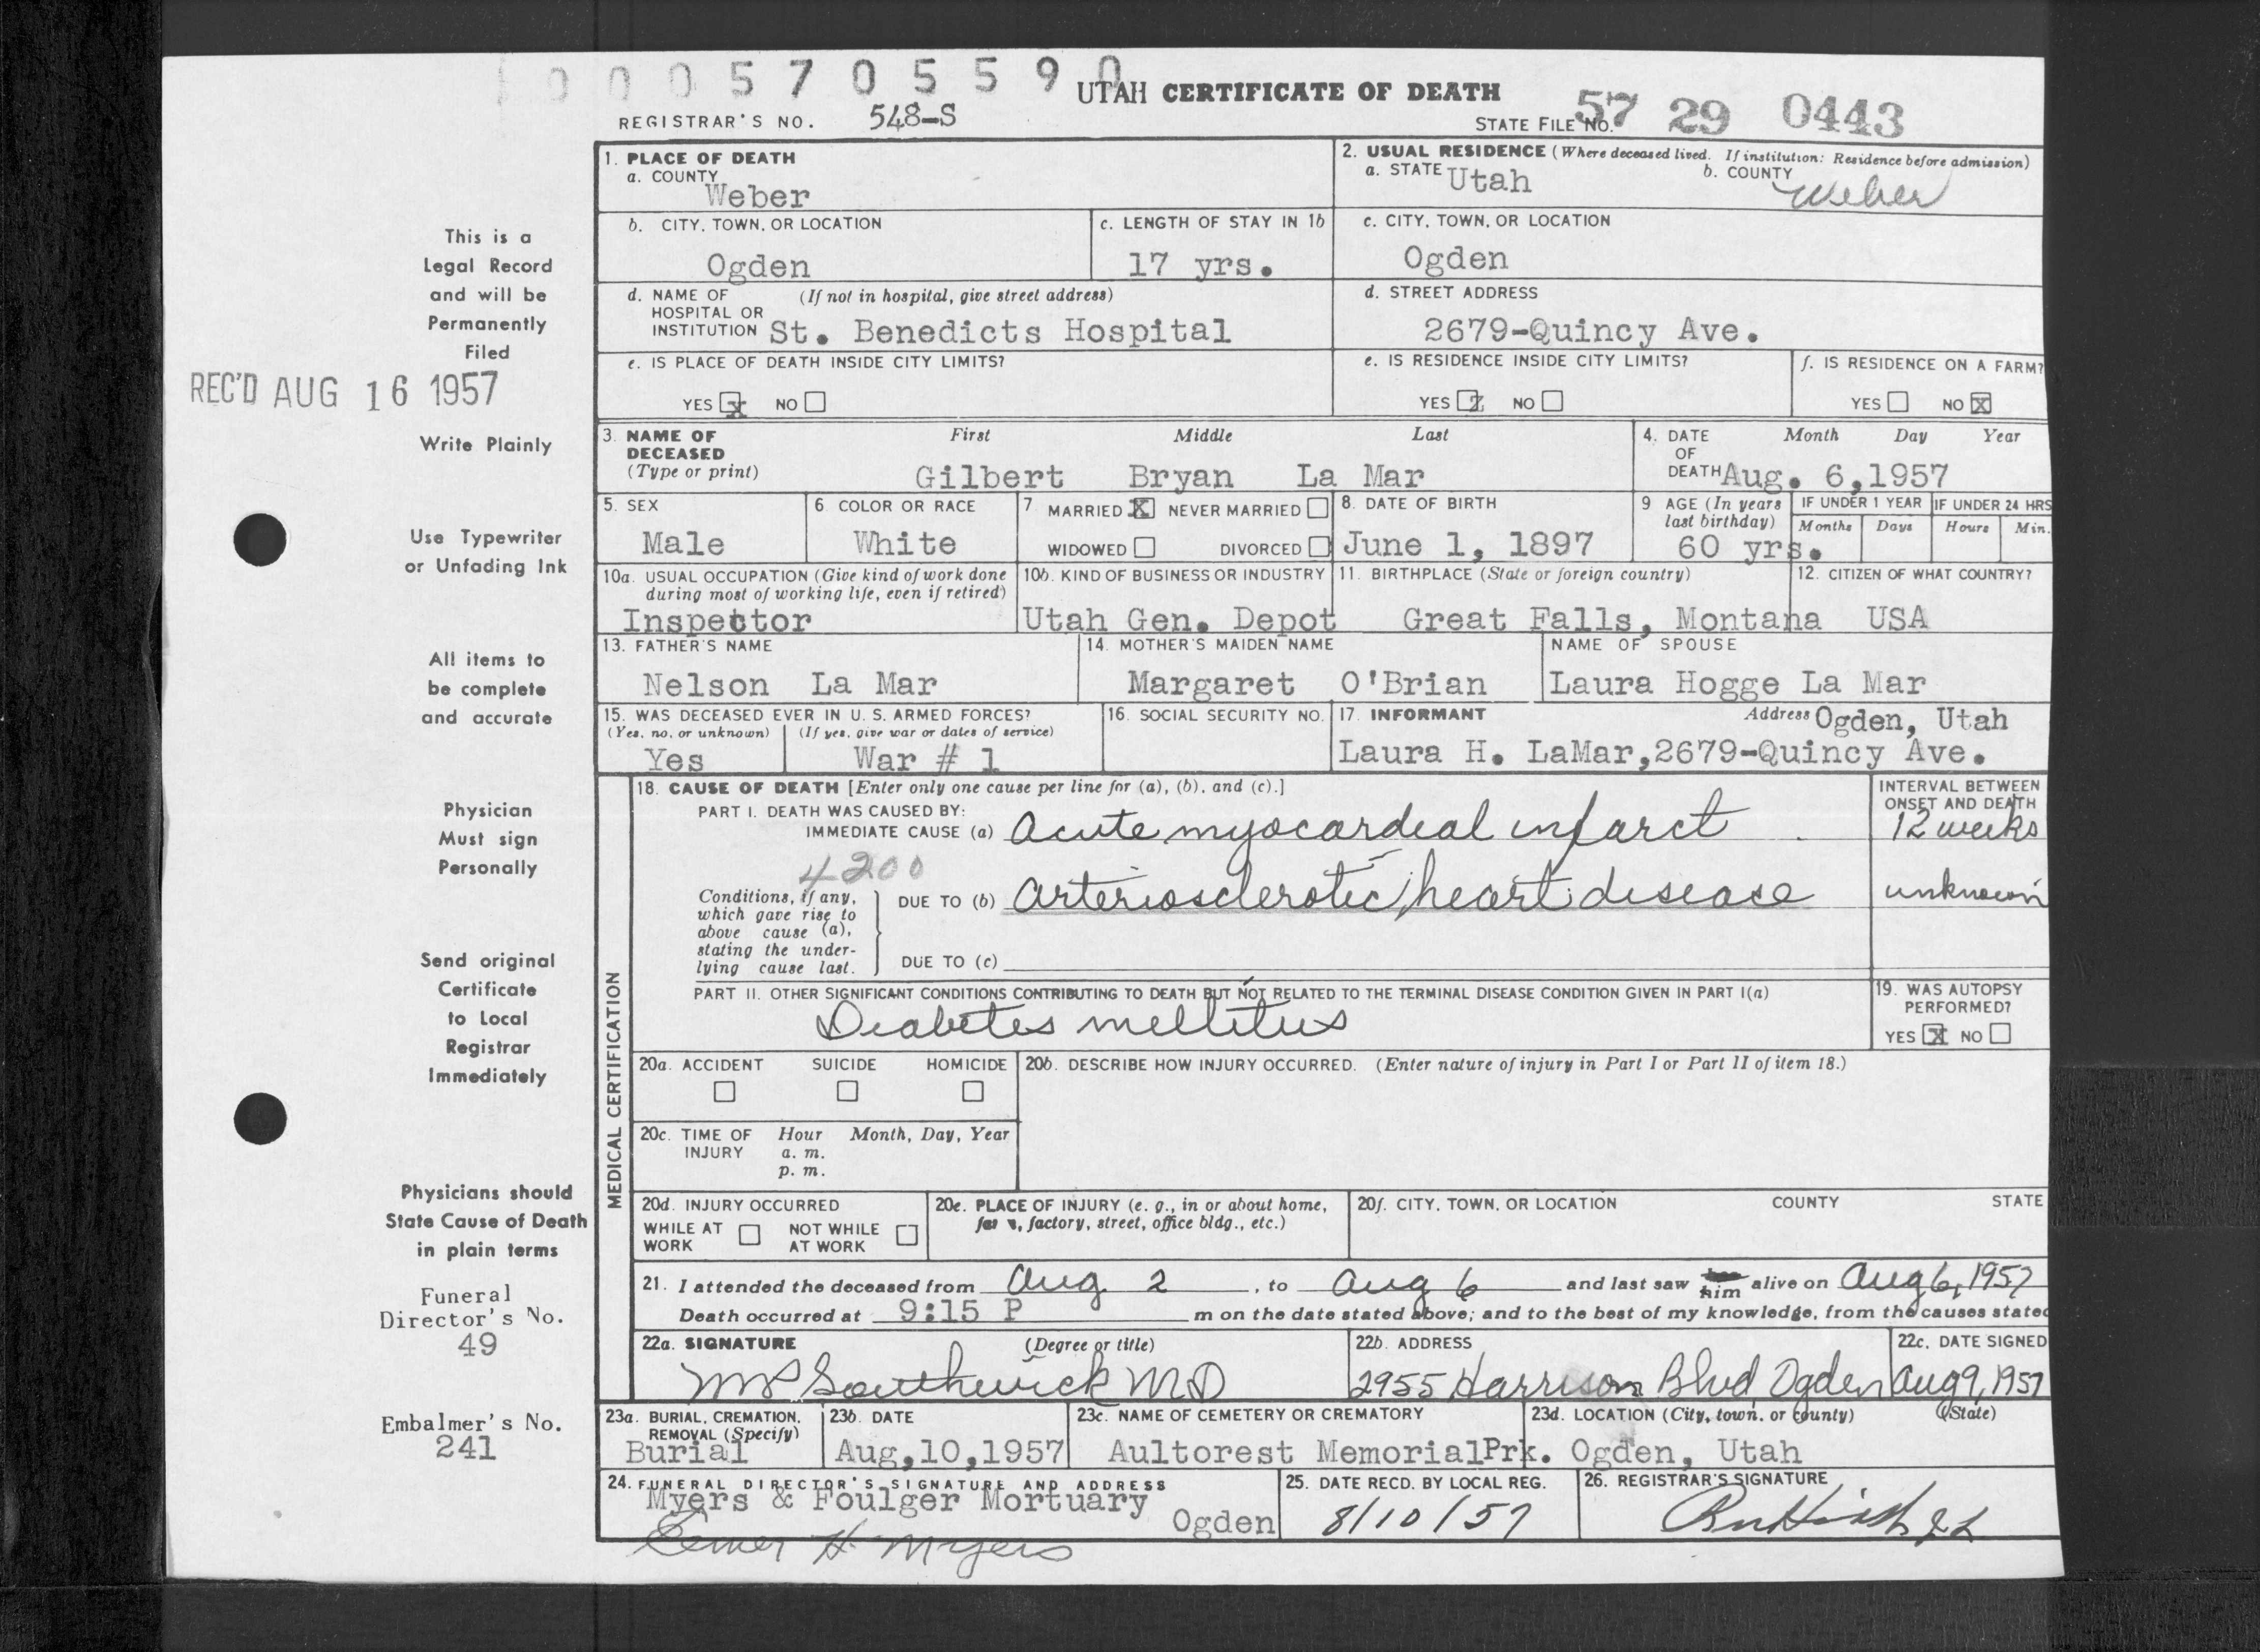 0 0 0 5 7 0 5 5 9 0
UTAH CERTIFICATE OF DEATH
REGISTRAR'S NO. 548-S
STATE FILE NO. 57 29 0443
This is a
Legal Record
and will be
Permanently
Filed
REC'D AUG 16 1957
Write Plainly
Use Typewriter
or Unfading Ink
All items to
be complete
and accurate
Physician
Must sign
Personally
Send original
Certificate
to Local
Registrar
Immediately
Physicians should
State Cause of Death
in plain terms
Funeral
Director's No.
49
Embalmer's No.
241
1. PLACE OF DEATH
a. COUNTY
Weber
2. USUAL RESIDENCE (Where deceased lived. If institution: Residence before admission)
a. STATE Utah b. COUNTY Weber
b. CITY, TOWN, OR LOCATION
Ogden
c. LENGTH OF STAY IN 1b
17 yrs.
c. CITY, TOWN, OR LOCATION
Ogden
d. NAME OF (If not in hospital, give street address)
HOSPITAL OR
INSTITUTION St. Benedicts Hospital
d. STREET ADDRESS
2679-Quincy Ave.
e. IS PLACE OF DEATH INSIDE CITY LIMITS?
YES X NO
e. IS RESIDENCE INSIDE CITY LIMITS?
YES NO
f. IS RESIDENCE ON A FARM?
YES NO X
3. NAME OF First Middle Last
DECEASED
(Type or print) Gilbert Bryan La Mar
4. DATE Month Day Year
OF
DEATH Aug. 6, 1957
5. SEX
Male
6 COLOR OR RACE
White
7 MARRIED X NEVER MARRIED
WIDOWED DIVORCED
8. DATE OF BIRTH
June 1, 1897
9 AGE (In years
last birthday)
60 yrs.
IF UNDER 1 YEAR
Months Days
IF UNDER 24 HRS
Hours Min.
10a. USUAL OCCUPATION (Give kind of work done
during most of working life, even if retired)
Inspector
10b. KIND OF BUSINESS OR INDUSTRY
Utah Gen. Depot
11. BIRTHPLACE (State or foreign country)
Great Falls, Montana
12. CITIZEN OF WHAT COUNTRY?
USA
13. FATHER'S NAME
Nelson La Mar
14. MOTHER'S MAIDEN NAME
Margaret O'Brian
NAME OF SPOUSE
Laura Hogge La Mar
15. WAS DECEASED EVER IN U. S. ARMED FORCES?
(Yes, no, or unknown) (If yes, give war or dates of service)
Yes War # 1
16. SOCIAL SECURITY NO.
17. INFORMANT Address Ogden, Utah
Laura H. LaMar, 2679-Quincy Ave.
MEDICAL CERTIFICATION
18. CAUSE OF DEATH [Enter only one cause per line for (a), (b), and (c).]
PART I. DEATH WAS CAUSED BY:
IMMEDIATE CAUSE (a) Acute myocardial infarct
INTERVAL BETWEEN
ONSET AND DEATH
12 weeks
4200
Conditions, if any,
which gave rise to
above cause (a),
stating the under-
lying cause last.
DUE TO (b) Arteriosclerotic heart disease
unknown
DUE TO (c)
PART II. OTHER SIGNIFICANT CONDITIONS CONTRIBUTING TO DEATH BUT NOT RELATED TO THE TERMINAL DISEASE CONDITION GIVEN IN PART I(a)
Diabetes mellitus
19. WAS AUTOPSY
PERFORMED?
YES X NO
20a. ACCIDENT SUICIDE HOMICIDE
20b. DESCRIBE HOW INJURY OCCURRED. (Enter nature of injury in Part I or Part II of item 18.)
20c. TIME OF Hour Month, Day, Year
INJURY a. m.
p. m.
20d. INJURY OCCURRED
WHILE AT NOT WHILE
WORK AT WORK
20e. PLACE OF INJURY (e. g., in or about home,
factory, street, office bldg., etc.)
20f. CITY, TOWN, OR LOCATION COUNTY STATE
21. I attended the deceased from Aug 2, to Aug 6 and last saw him alive on Aug 6, 1957
Death occurred at 9:15 P m on the date stated above; and to the best of my knowledge, from the causes stated
22a. SIGNATURE (Degree or title)
Southwick MD
22b. ADDRESS
2955 Harrison Blvd Ogden
22c. DATE SIGNED
Aug 9, 1957
23a. BURIAL, CREMATION,
REMOVAL (Specify)
Burial
23b. DATE
Aug, 10, 1957
23c. NAME OF CEMETERY OR CREMATORY
Aultorest Memorial Prk.
23d. LOCATION (City, town, or county) (State)
Ogden, Utah
24. FUNERAL DIRECTOR'S SIGNATURE AND ADDRESS
Myers & Foulger Mortuary
Ogden
25. DATE RECD. BY LOCAL REG.
8/10/57
26. REGISTRAR'S SIGNATURE
H Myers